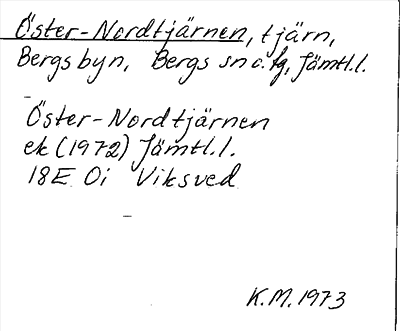 Öster-Nordtjärnen, tjärn,
Bergsbyn, Bergs sn o. fg, Jämtl.l.
Öster-Nordtjärnen
ek (1972) Jämtl.l.
18E 0i Viksved
K.M. 1973